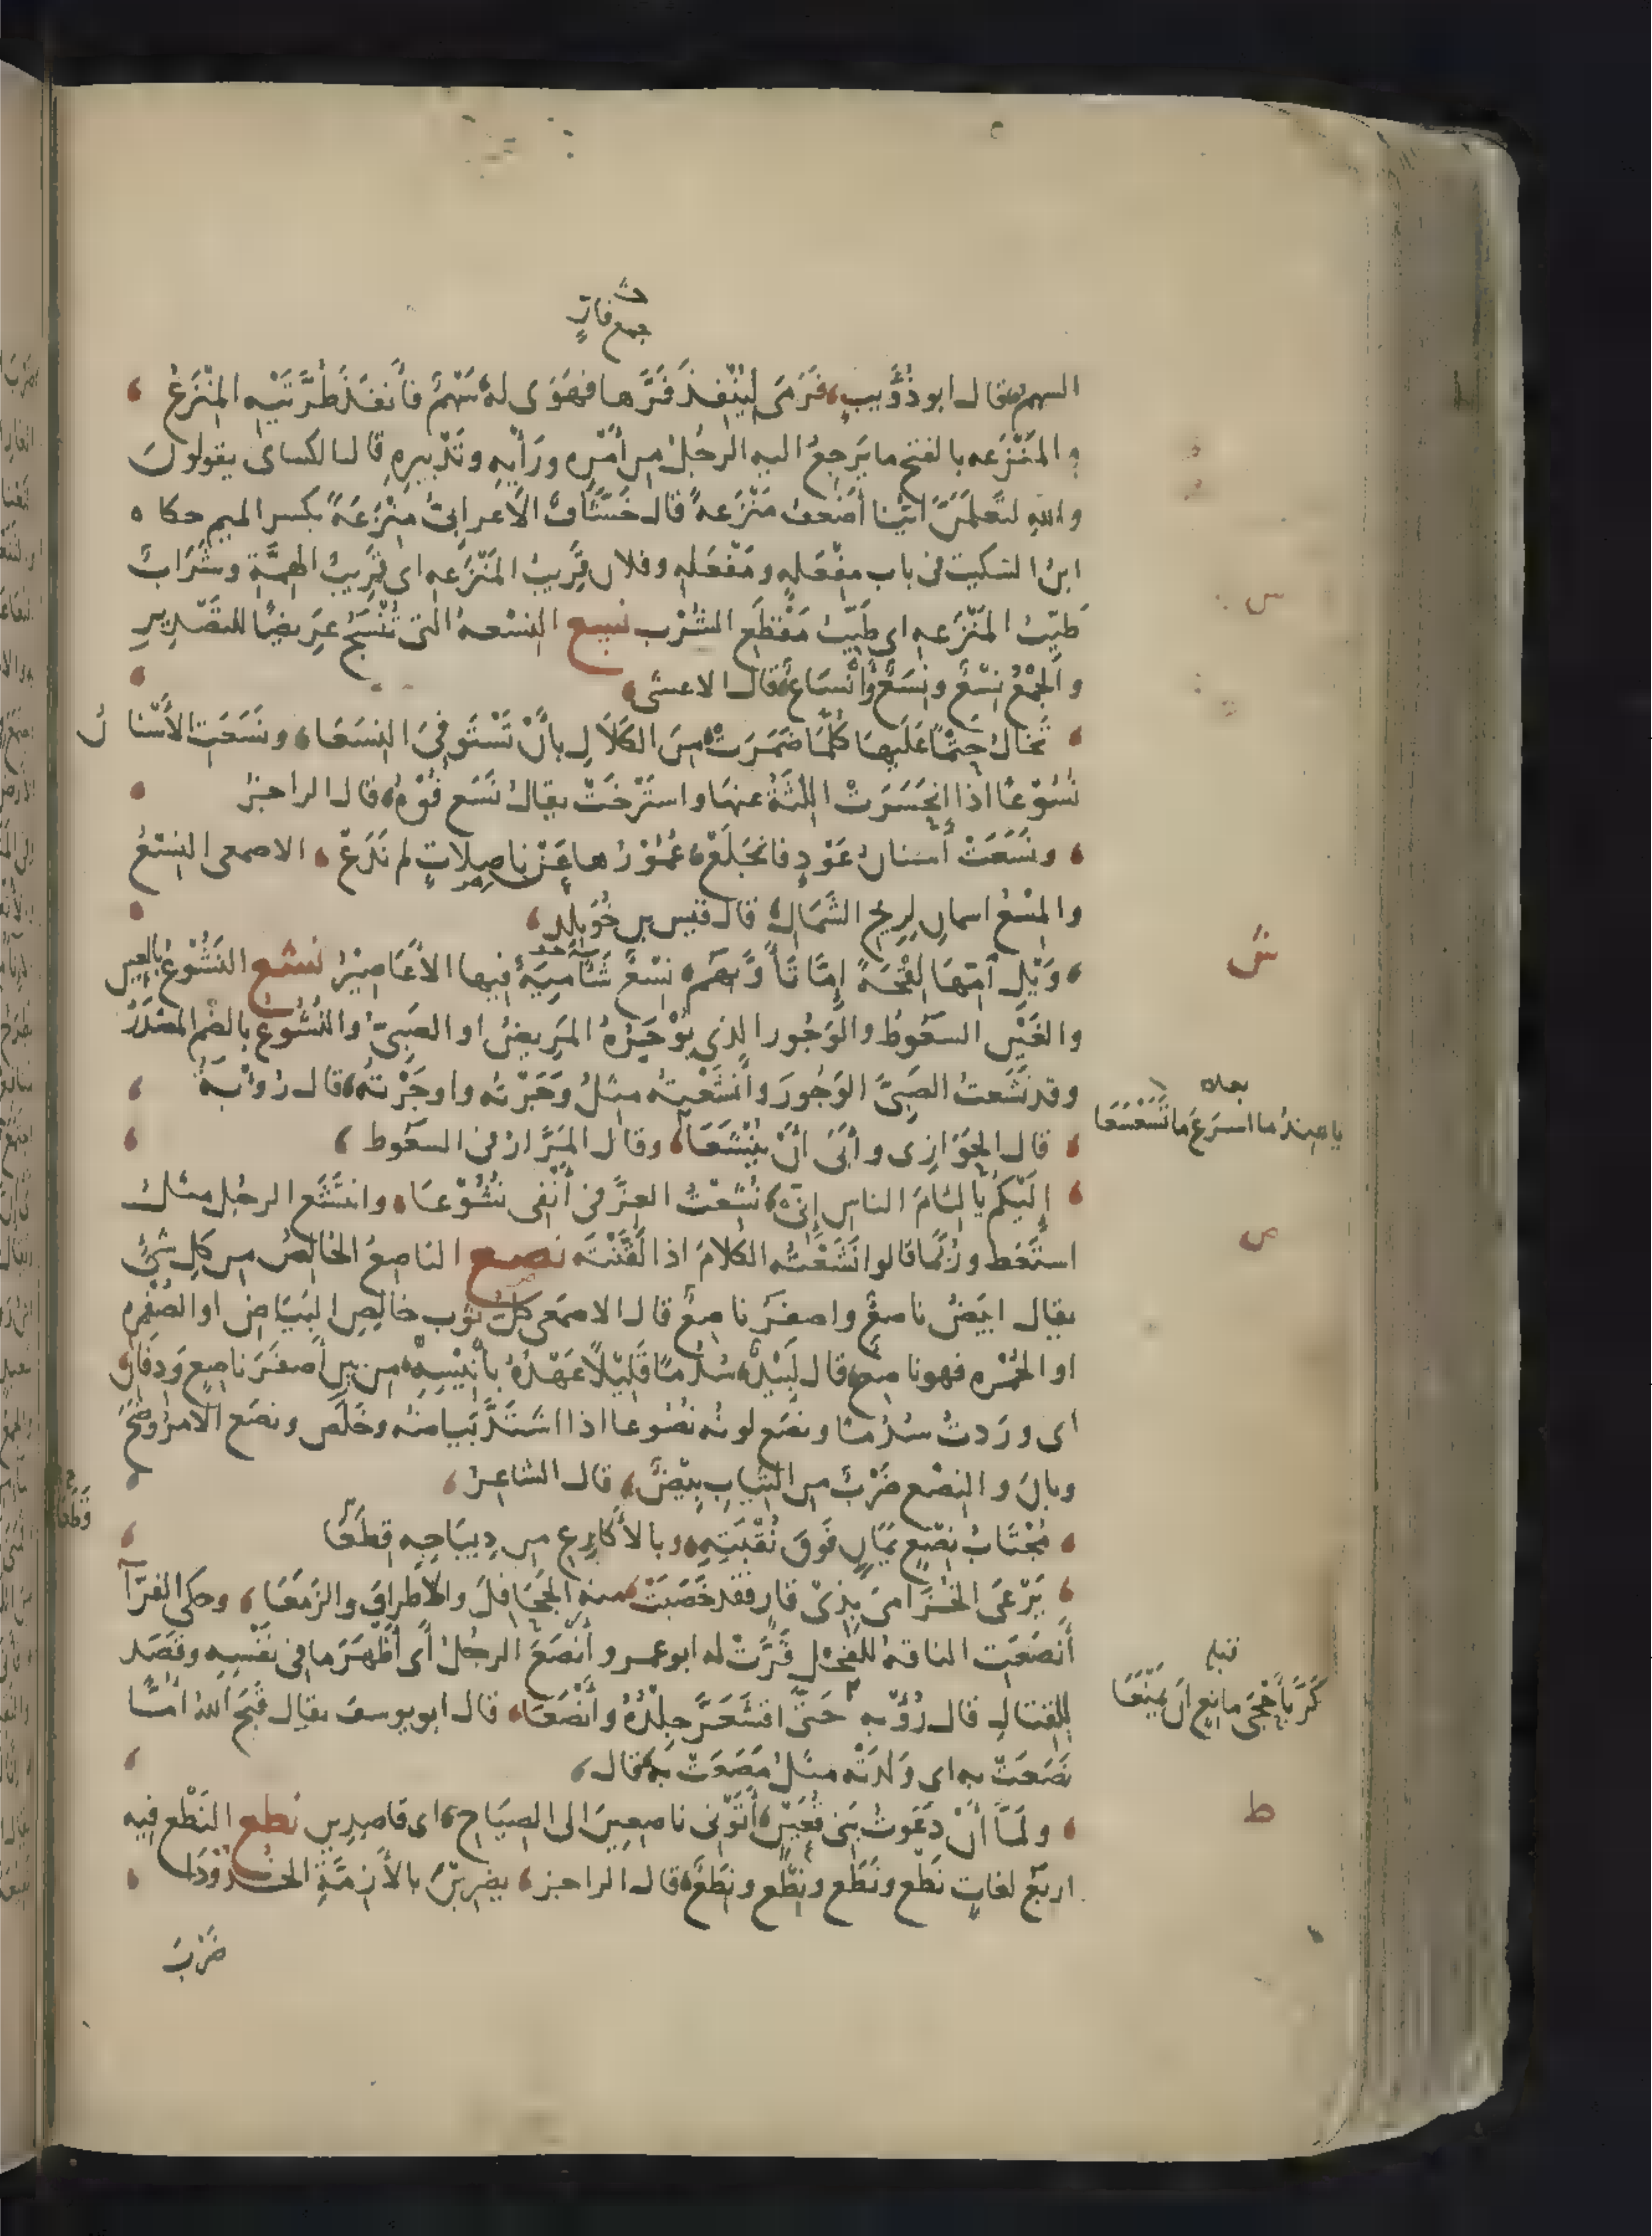 جمع فارٍّ
السهم قال ابو ذُؤَيبٍ فَرَمَى لِيُنْفِذَ فَرَّها فهَوَى له سَهْمٌ فأَنفَذَ طُرَّتَيْهِ المِنْزَعُ
والمَنْزَعه بالفتح ما يَرجِعُ اليه الرجُلُ من أَمْرِه ورَأْيِه وتَدْبِيرِهِ قال الكساى يقولون
والله لتَعلَمَنَّ ايُّنا أَضْعفُ مَنْزَعةً قال خَشَّافٌ الأَعرابىّ مِنْزَعَةً بكسر الميم حكاه
ابنُ السكيت فى باب مِفْعَلهٍ ومَفْعَلهٍ وفلان قَرِيبُ المَنْزَعهِ اى قَرِيبُ الهِمَّةِ وشَرَابٌ
طَيِّبُ المَنْزَعهِ اى طَيِّبُ مَقْطَعِ الشُرْبِ نسع النِسْعهُ التى تُنْسَجُ عَرِيضًا للتصْدِيرِ
والجَمْعُ نِسْعٌ ونِسَعٌ وأَنْسَاعٌ قال الاعشى
تَخالُ حَتْمًا عَلَيها كُلَّما ضَمَرَتْ مِنَ الكَلَالِ بأَنْ تَسْتَوفِىَ النِسَعَا ونَسَعَتِ الأَسْنانُ
نُسُوْعًا اذا اِنحَسَرَتْ اللِثَةُ عنها واستَرْخَتْ يقال نَسَع فُوْهُ قال الراجزُ
ونَسَعَتْ أَسنانُ عَوْدٍ فانجَلَعْ عُمُوْرُها عَنْ ناصِلاتٍ لم تَدَعْ الاصمعى النِسْعُ
والمِسْعُ اسمانِ لِرِيحِ الشَمَالِ قال قيس بن خُوَيلِدٍ
وَيْلِ آمِّها لِقْحَةً إِمَّا تَأَوَّبَهُم نِسْعٌ شَآمِيَةٌ فيها الأَعَاصِيْرُ نشع النَشُوْعُ بالعين
والغَيْنِ السَعُوطُ والوَجُور الذي يُوْجَرُهُ المَرِيضُ او الصَبِىّ والنُشُوعُ بالضم المصْدَرُ
وقد نَشَعتُ الصَبِىَّ الوَجُورَ وأَنشَعْتهُ مِثلُ وَجَرْتُه واوجَرْتُهُ قال رُوأْبَةُ
قال الحَوَازِى وأَبَى أَنْ يُنْشَعَا وقال المَرَّارُ فى السَعُوط
يا هِندُ ما اسرَعَ ما تَسَعْسَعَا
إِلَيْكُم يا لِئامَ الناسِ إِنِّى نُشِعْتُ العِزَّ فى أَنْفِى نُشُوْعَا وانتَشَع الرجُل مثل
استَعَط ورُبَّما قالوا نَشَعْتُه الكلامَ اذا لَقَّنْتَه نصع الناصِعُ الخالِصُ من كل شىْءٍ
يقال ابيَضُ ناصِعٌ واصفَرُ ناصِعٌ قال الاصمَعى كلُّ ثوب خالِصِ البَيَاضِ او الصُفْرِه
او الحُمْرِه فهو ناصِعٌ قال لَبِيْدٌ سُدُمًا قَلِيْلًا عَهْدُهُ بأَنِيْسِهِ مِن بينِ أَصفَرَ ناصِعٍ ودِفانِ
اى ورَدتُ سُدُمًا ونصَع لونُه نُصُوعا اذا اشتَدَّ بَياضُه وخَلَص ونصَع الامرُ وضَحَ
وبانَ والنِصْع ضَرْبٌ من الثِيابِ بِيْضٌ قال الشاعِرُ
مُجْتَابُ نِصْعٍ يَمَانٍ فَوقَ نُقْبَتِهِ وبالأَكارِعِ من دِيبَاجِهِ قِطَعَا
يَرْعَى الخُزَامَى بِذِى قارٍ فقد خَضَبَتْ منه الجَحَافِلَ والأَطرافَ والزَمَعَا وحكى الفرّآ
أَنصَعَتِ الناقهُ للفَحْلِ قَرَّتْ له ابو عمرو أَنْصَعَ الرجُلُ أَى أَظْهَرَ ما فى نَفْسِهِ وقَصَد
للقِتالِ قال رُؤْبه حَتَّى اقشَعَرَّ جِلْدُهُ وأَنْصَعَا قال ابو يوسف يقال قَبَحَ اللهُ امًّا
كَرَّ بأَحْجَى مانِعٍ ان يَمْنَعَا
نَصَعَتْ به اى وَلدَتْه مثلُ مَصَعَتْ به قال
ولَمَّا أَنْ دَعَوتُ بَنى قُعَيْنٍ أَتَوْنِى ناصِعِينَ الى الصِيَاحِ اى قاصِدِين نطع النَطْع فيه
اربَع لغاتٍ نَطْع ونَطَع ونِطْع ونِطَعٌ قال الراجز يضرِبْنَ بالأَزِمَّةِ الخُدُوْدَا
ضَرْبَ
س
ش
ص
ط